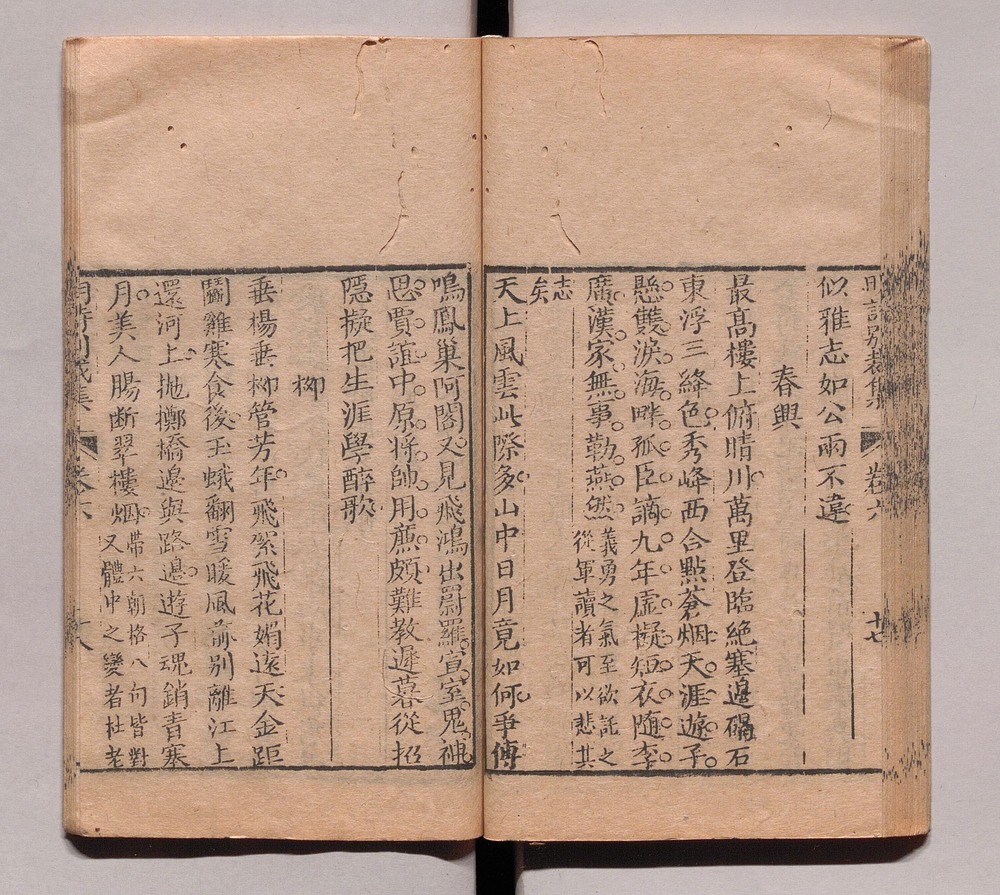 明詩別裁集 卷六 十七
似雅志如公兩不違
春興
最高樓上俯晴川萬里登臨絶塞邊碣石
東浮三絳色秀峰西合點蒼烟天涯遊子
懸雙淚海畔孤臣謫九年虛擬短衣隨李
廣漢家無事勒燕然義勇之氣至欲託之
從軍讀者可以悲其
志
矣
天上風雲此際多山中日月竟如何爭傳
鳴鳳巢阿閣又見飛鴻出罻羅宣室鬼神
思賈誼中原將帥用廉頗難教遲暮從招
隱擬把生涯學醉歌
柳
垂楊垂柳管芳年飛絮飛花媚遠天金距
鬬雞寒食後玉蛾翻雪暖風前別離江上
還河上抛擲橋邊與路邊遊子魂銷青塞
月美人腸斷翠樓烟帶六朝格八句皆對
又體中之變者杜老
明詩別裁集 卷六 十八